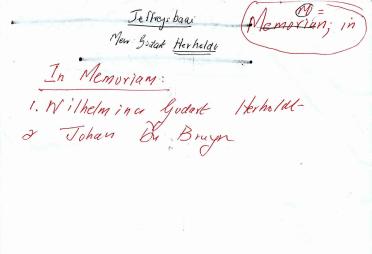 Jeffreysbaai
Mev. Godart Herholdt
M =
Memoriam; in
In Memoriam:
1. Wilhelmina Godart Herholdt
2 Johan Du Bruyn